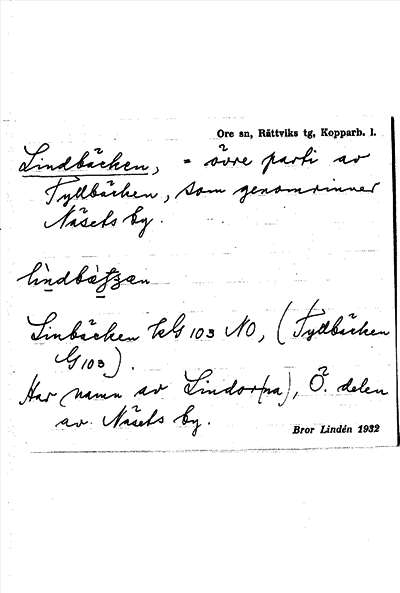 Ore sn, Rättviks tg, Kopparb. l.
Lindbäcken, = övre parti av
Fyllbäcken, som genomrinner
Näsets by.
Linbäcken kG 103 NO, (Fyllbäcken
G 103).
Har namn av Lindor(na), Ö. delen
av Näsets by.
Bror Lindén 1932